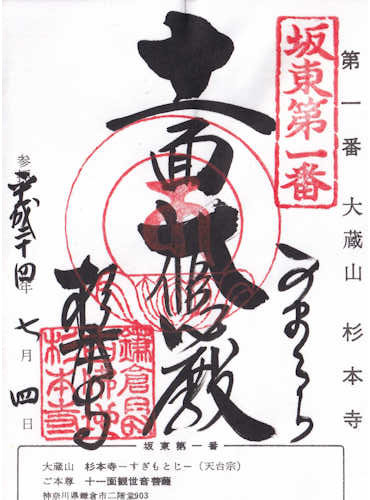 第一番 大蔵山 杉本寺
坂東第一番
かまくら
十一面大悲殿
杉本寺
参拝 平成二十四年 七月 四日
坂東第一番
大蔵山 杉本寺－すぎもとじ－（天台宗）
ご本尊 十一面観世音菩薩
神奈川県鎌倉市二階堂903